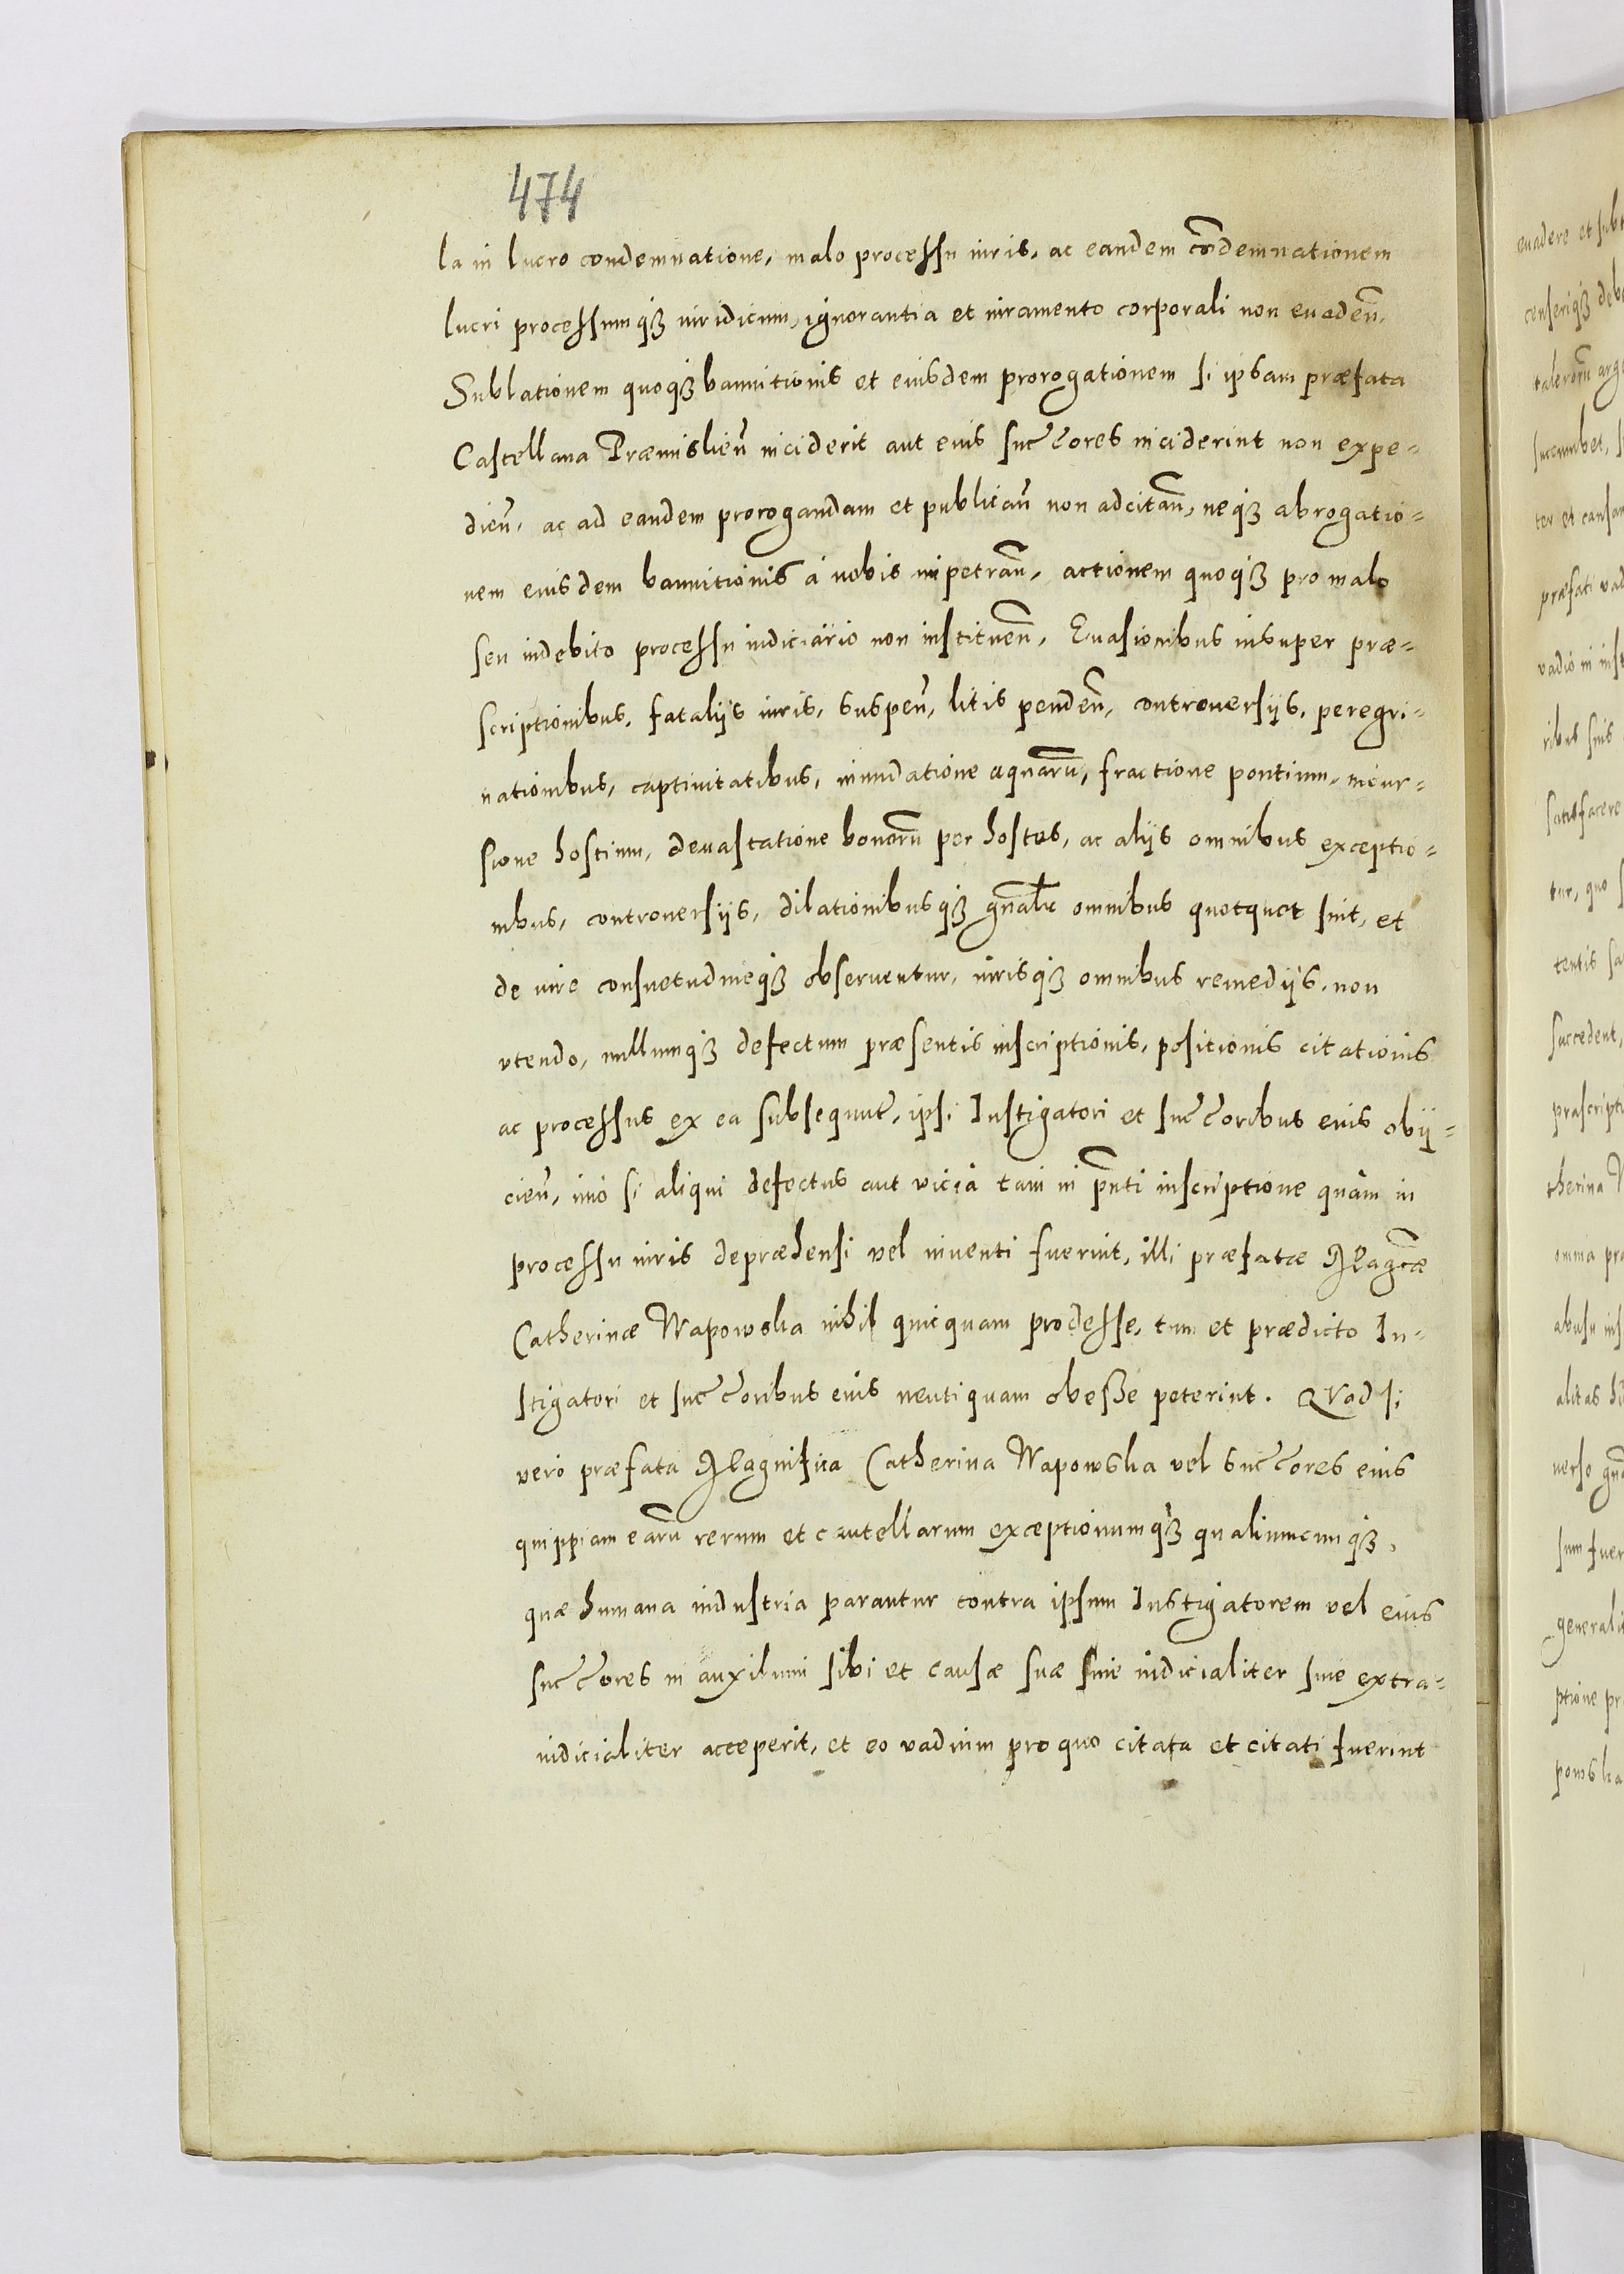 474
la in lucro condemnatione, malo processu iuris, ac eandem cōdemnationem
lucri processumqȝ iuridicum, ignorantia et iuramento corporali non euadeñ.
Sublationem quoqȝ bannitionis et eiusdem prorogationem si ipsam præfata
Castellana Præmislieñ inciderit aut eius succ̃ores inciderint non expe=
dieñ, ac ad eandem prorogandam et publicañ non adcitañ, neqȝ abrogatio=
nem eiusdem bannitionis à nobis impetrañ, actionem quoqȝ pro malo
seu indebito processu iudiciario non institueñ, Euasionibus insuper præ=
scriptionibus, fatalijs iuris, suspeñ, litis pendeñ, controuersijs, peregri=
nationibus, captiuitatibus, inundatione aquarũ, fractione pontium, incur=
sione hostium, deuastatione bonorũ per hostes, ac alijs omnibus exceptio=
nibus, controuersijs, dilationibusqȝ gñalr̃ omnibus quotquot sint, et
de iure consuetudineqȝ obseruentur, iurisqȝ omnibus remedijs, non
vtendo, nullumqȝ defectum præsentis inscriptionis, positionis citationis
ac processus ex ea subsequut̃, ipsi Instigatori et succ̃oribus eius obij=
cieñ, imò si aliqui defectus aut vicia tam in p̃nti inscriptione quàm in
processu iuris depræhensi vel inuenti fuerint, illi præfatæ Magc̃æ
Catherinæ Wapowska nihil quicquam prodesse, tum et prædicto In=
stigatori et succ̃oribus eius neutiquam obesse poterint. Quod si
verò præfata Magnifica Catherina Wapowska vel succ̃ores eius
quippiam earũ rerum et cautellarum exceptionumqȝ qualiumcumqȝ,
quæ humana industria parantur contra ipsum Instigatorem vel eius
succ̃ores in auxilium sibi et causæ suæ siue iudicialiter siue extra=
iudicialiter acceperit, et eo vadium pro quo citata et citati fuerint